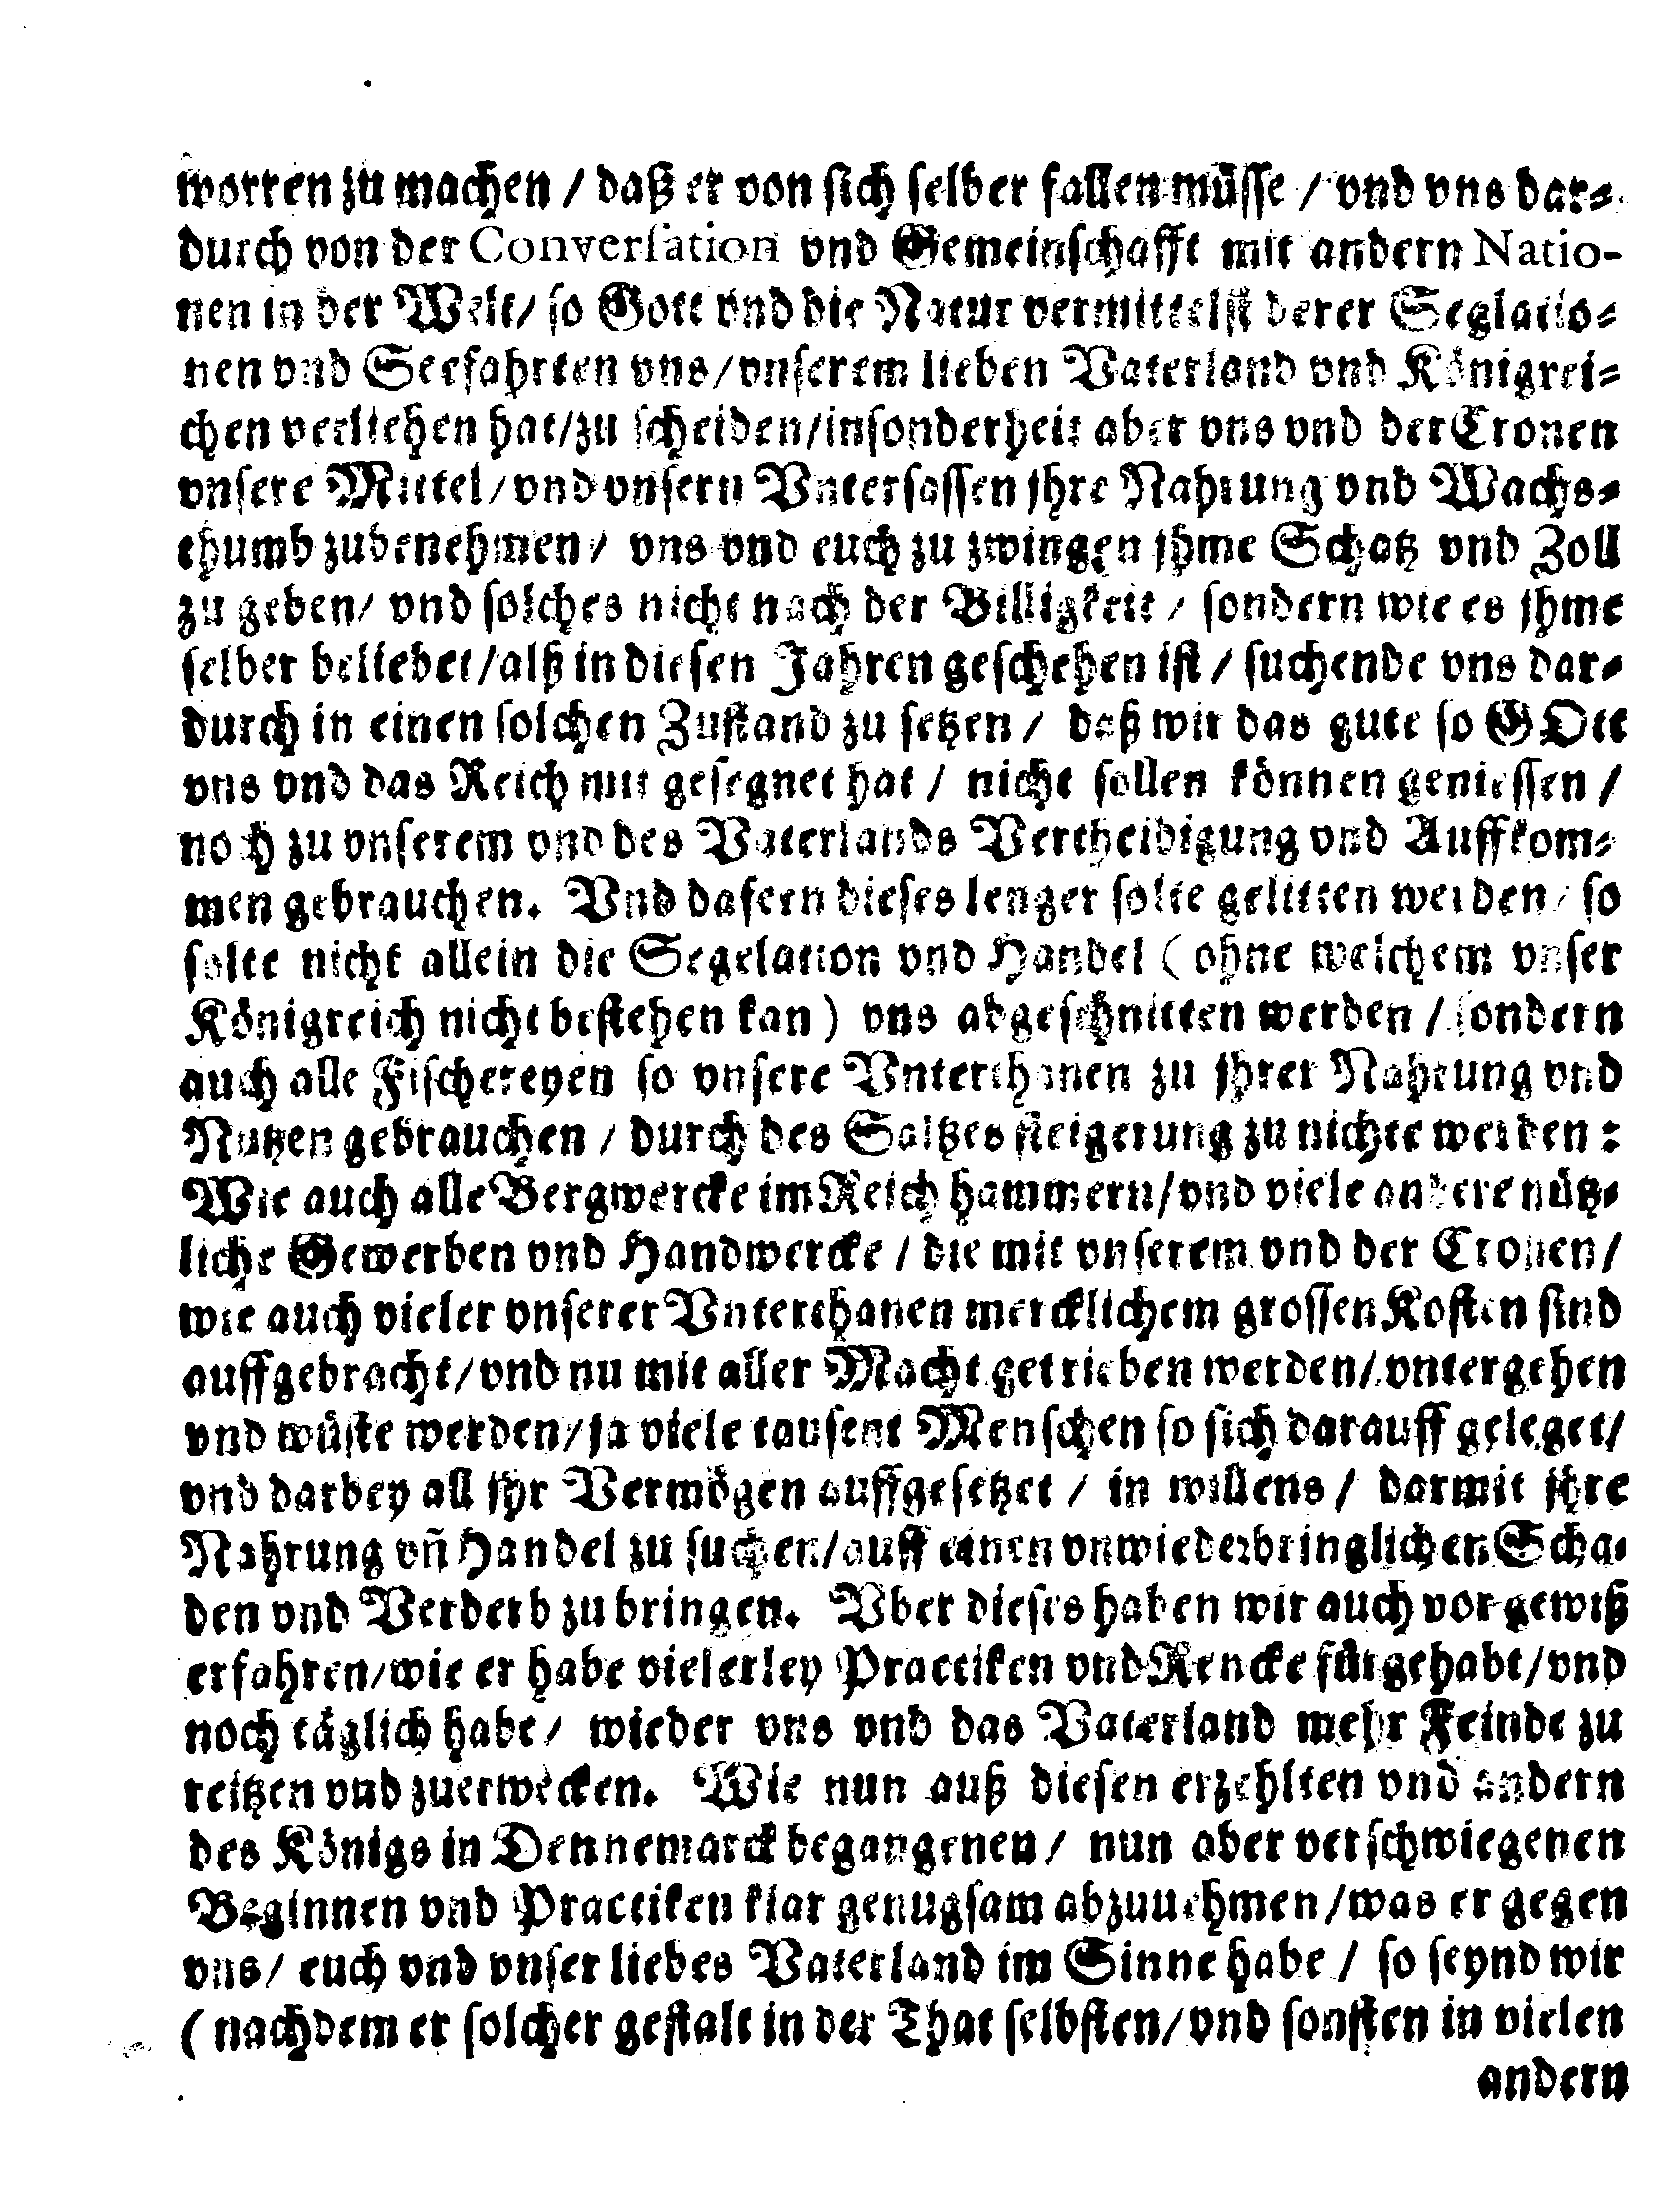 worren zu machen / daß er von sich selber fallen müsse / vnd vns dar-
durch von der Conversation vnd Gemeinschafft mit andern Natio-
nen in der Welt / so Gott vnd die Natur vermittelst derer Seglatio-
nen vnd Seefahrten vns / vnserem lieben Vaterland vnd Königrei-
chen verliehen hat / zu scheiden / insonderheit aber vns vnd der Cronen
vnsere Mittel / vnd vnsern Vntersassen jhre Nahrung vnd Wachs-
thumb zubenehmen / vns vnd euch zu zwingen jhme Schatz vnd Zoll
zu geben / vnd solches nicht nach der Billigkeit / sondern wie es jhme
selber beliebet / alß in diesen Jahren geschehen ist / suchende vns dar-
durch in einen solchen Zustand zu setzen / daß wir das gute so GOtt
vns vnd das Reich mit gesegnet hat / nicht sollen können geniessen /
noch zu vnserem vnd des Vaterlands Vertheidigung vnd Auffkom-
men gebrauchen. Vnd dafern dieses lenger solte gelitten werden / so
solte nicht allein die Segelation vnd Handel ( ohne welchem vnser
Königreich nicht bestehen kan ) vns abgeschnitten werden / sondern
auch alle Fischereyen so vnsere Vnterthanen zu jhrer Nahrung vnd
Nutzen gebrauchen / durch des Saltzes steigerung zu nichte werden :
Wie auch alle Bergwercke im Reich hammern / vnd viele andere nütz-
liche Gewerben vnd Handwercke / die mit vnserem vnd der Cronen /
wie auch vieler vnserer Vnterthanen mercklichem grossen Kosten sind
auffgebracht / vnd nu mit aller Macht getrieben werden / vntergehen
vnd wüste werden / ja viele tausent Menschen so sich darauff geleget /
vnd darbey all jhr Vermögen auffgesetzet / in willens / darmit jhre
Nahrung vñ Handel zu suchen / auff einen vnwiederbringlichen Scha-
den vnd Verderb zu bringen. Vber dieses haben wir auch vor gewiß
erfahren / wie er habe vielerley Practiken vnd Rencke fürgehabt / vnd
noch täglich habe / wieder vns vnd das Vaterland mehr Feinde zu
reitzen vnd zuerwecken. Wie nun auß diesen erzehlten vnd andern
des Königs in Dennemarck begangenen / nun aber verschwiegenen
Beginnen vnd Practiken klar genugsam abzunehmen / was er gegen
vns / euch vnd vnser liebes Vaterland im Sinne habe / so seynd wir
( nachdem er solcher gestalt in der That selbsten / vnd sonsten in vielen
andern